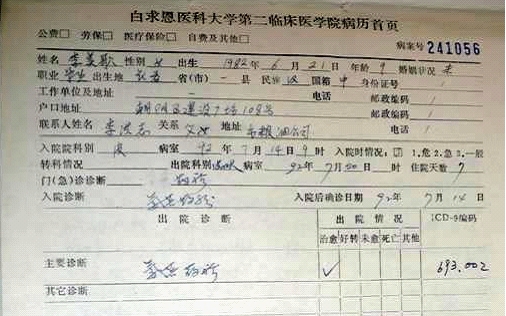 白求恩医科大学第二临床医学院病历首页
公费□ 劳保□ 医疗保险□ 自费及其他□
病案号 241056
姓名 李美歌 性别 女 出生 1982年6月21日 年龄 9 婚姻状况 未
职业 学生 出生地 长春 省(市) 一 县 民族 汉 国籍 中 身份证号 /
工作单位及地址 一 电话 邮政编码 /
户口地址 朝阳区建设广场108号 电话 邮政编码 /
联系人姓名 李洪志 关系 父女 地址 市粮油公司 电话 /
入院院科别 皮 病室 92年7月14日9时 入院时情况: 1.危 2.急 3.一般
转科情况 出院科别 病室 92年7月20日 时 住院天数 7
门(急)诊诊断 药疹
入院诊断 药疹 入院后确诊日期 92年7月14日
出院诊断 出院情况 ICD-9编码
治愈 好转 未愈 死亡 其他
主要诊断 药疹 ✓ 693.002
其它诊断